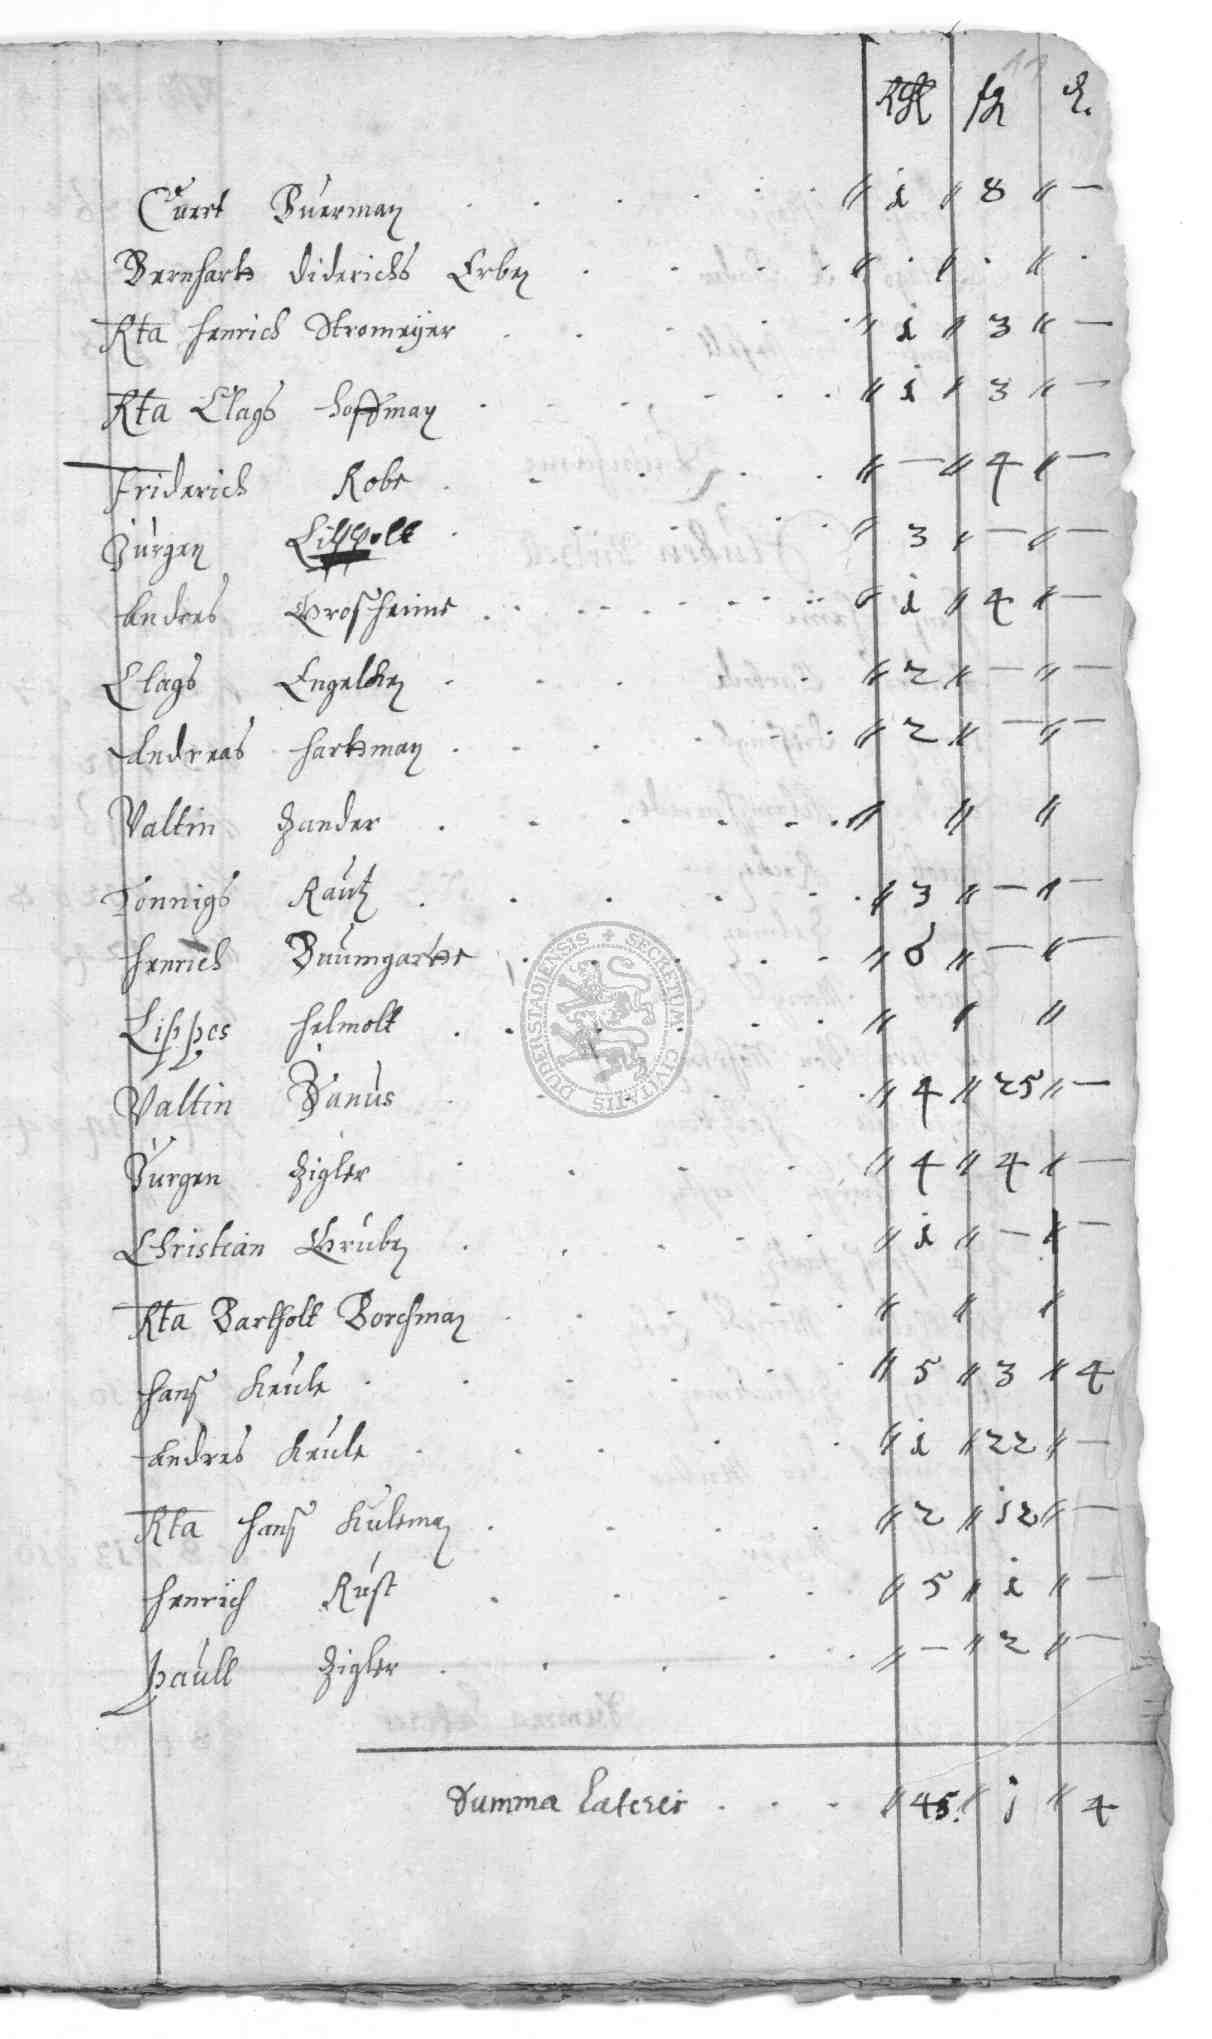 Rthl fg ₰.
Cuert Buerman . . . . . " 1 " 8 " —
Bernhartz Diderichs Erben . . . . " . " . " .
Rta Henrich Stromeÿer . . . . " 1 " 3 " —
Rta Clags Hoffman . . . . . . " 1 " 3 " —
Friderich Robe . . . . . " — " 4 " —
Jürgen Lippolt . . . . " 3 " — " —
Andres Grosheime . . . . . . . " 1 " 4 " —
Clags Engelken . . . . " 2 " — " —
Andreas Hartzman . . . . . " 2 " — " —
Valtin Zander . . . . . . " " "
Tonnigs Rautz . . . . . . " 3 " — " —
Henrich Buumgartte . . . . . " 6 " — " —
Lippes Helmolt . . . . . " " "
Valtin Janus . . . . . " 4 " 25 " —
Jurgen Zigler . . . . " 4 " 4 " —
Christian Gruben . . . . . " 1 " — " —
Rta Bartholt Borchman . . . . " " "
Hanß Keule . . . . . " 5 " 3 " 4
Andres Keule . . . . . " 1 " 22 " —
Rta Hanß Kuleman . . . . " 2 " 12 " —
Henrich Rust . . . . " 5 " 1 " —
Paull Zigler . . . . . " — " 2 " —
Summa Lateris . . . " 45. " 1 " 4
SECRETUM CIVITATIS DUDERSTADIENSIS